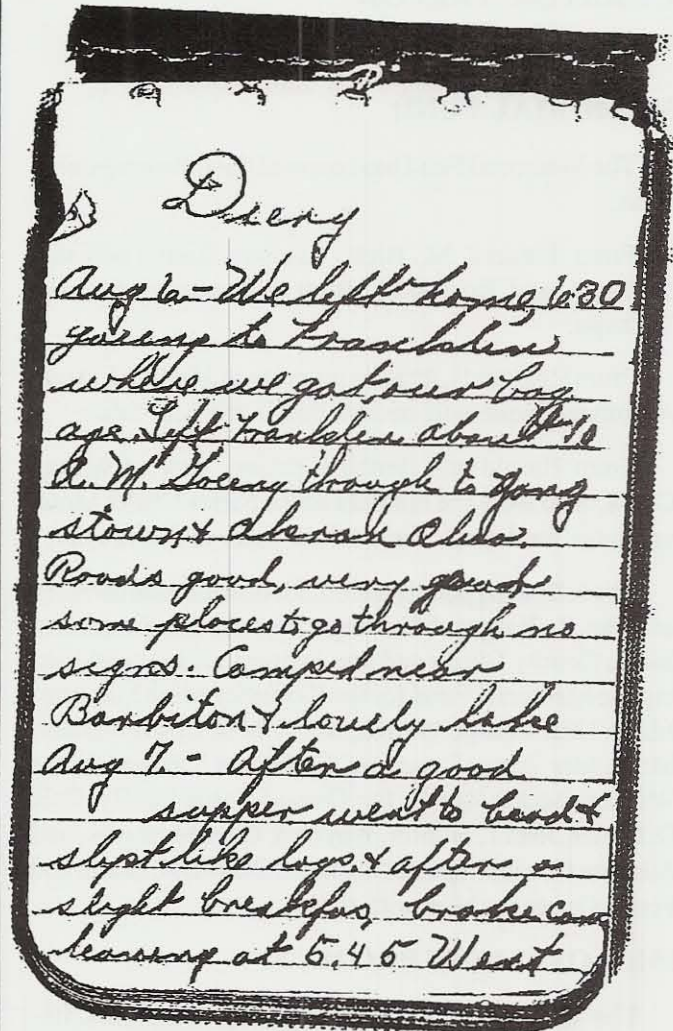 Diery
Aug 6 - We left home, 6:30
goeing to Franklin
where we got our bag
age. Left Franklin about 10
A.M. Goeing through to yong
stown & Akron Ohio.
Roads good, very good
some places to go through no
signs. Camped near
Barbiton & lovely lake
Aug 7. - After a good
supper went to bead &
slept like logs. & after a
slight breakfas, broke cam
leaving at 5.45 Went